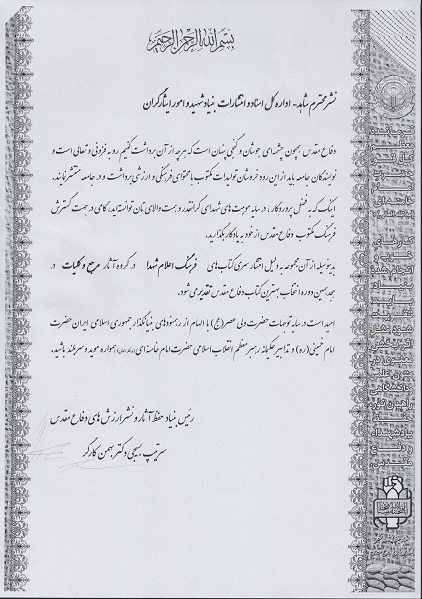 بسم الله الرحمن الرحیم
نشر محترم شاهد - اداره کل اسناد و انتشارات بنیاد شهید و امور ایثارگران
دفاع مقدس همچون چشمه‌ای جوشان و گنجی پنهان است که هرچه از آن برداشت کنیم رو به فزونی و تعالی است و
نویسندگان جامعه باید از این رود خروشان تولیدات مکتوب با محتوای فرهنگی و ارزشی برداشت و در جامعه منتشر نمایند.
اینک که به فضل پروردگار، در سایه موهبت های شهدای گرانقدر و همت والای تان توانسته‌اید، گامی در جهت گسترش
فرهنگ مکتوب دفاع مقدس از خود به یادگار بگذارید.
بدینوسیله از آن مجموعه به دلیل انتشار سری کتاب های فرهنگ اعلام شهدا در گروه آثار مرجع و کلیات در
هجدهمین دوره انتخاب بهترین کتاب دفاع مقدس تقدیر می شود.
امید است در سایه توجهات حضرت ولی عصر (عج) با الهام از رهنمودهای بنیانگذار جمهوری اسلامی ایران حضرت
امام خمینی (ره) و تدابیر حکیمانه رهبر معظم انقلاب اسلامی حضرت امام خامنه ای همواره موید و سربلند باشید.
رئیس بنیاد حفظ آثار و نشر ارزش های دفاع مقدس
سرتیپ بسیجی دکتر بهمن کارگر